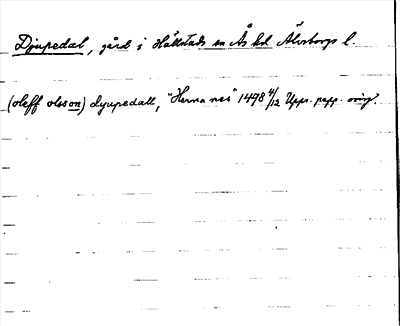 Djupedal, gård i Hällstads sn Ås hd Älvsborgs l.
(oleff olsson) dyupedall, "Herna nes" 1498 4/12 Upps. papp. orig.